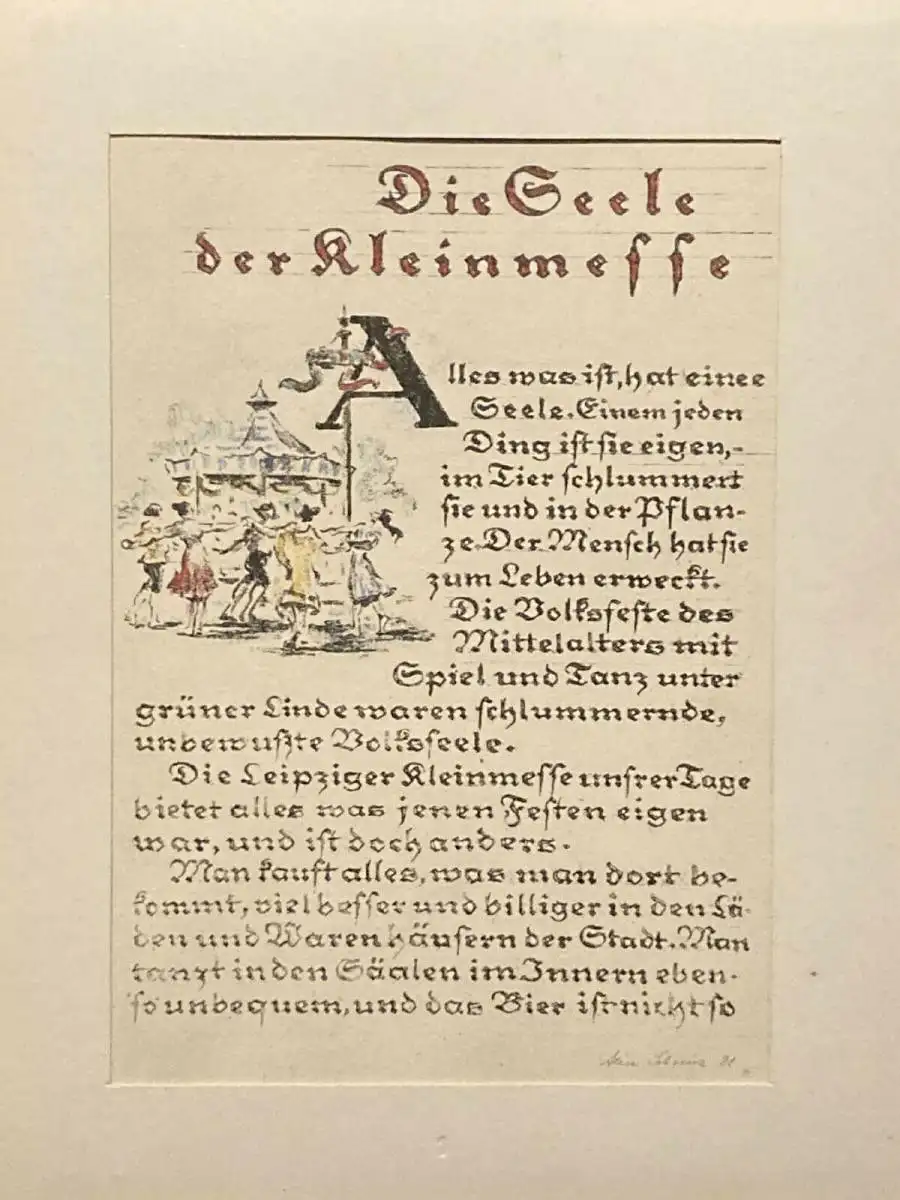 Die Seele
der Kleinmesse
Alles was ist, hat eine
Seele. Einem jeden
Ding ist sie eigen,-
im Tier schlummert
sie und in der Pflan-
ze. Der Mensch hat sie
zum Leben erweckt.
Die Volksfeste des
Mittelalters mit
Spiel und Tanz unter
grüner Linde waren schlummernde,
unbewußte Volksseele.
Die Leipziger Kleinmesse unsrer Tage
bietet alles was jenen Festen eigen
war, und ist doch anders.
Man kauft alles, was man dort be-
kommt, viel besser und billiger in den Lä-
den und Warenhäusern der Stadt. Man
tanzt in den Säalen im Innern eben-
so unbequem, und das Bier ist nicht so